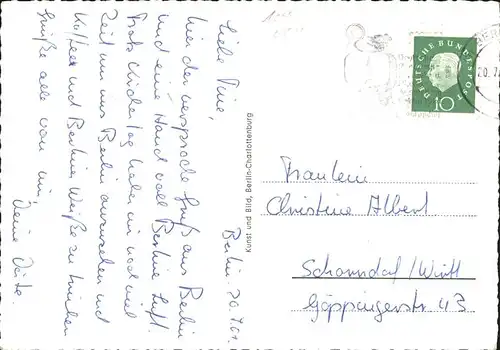 Berlin. 20.7.61
Liebe Tine,
hier der versprochene Gruß aus Berlin
und eine Hand voll Berliner Luft.
Trotz habe ich noch viel
Zeit um uns Berlin anzusehen und
Kaffee und Berliner Weiße zu trinken
Grüße alle von mir,
Deine
Kunst und Bild, Berlin-Charlottenburg
DEUTSCHE BUNDESPOST
10
BERL
20.7
Fräulein
Christine Albert
Schorndorf/Württ
Göppingerstr 43